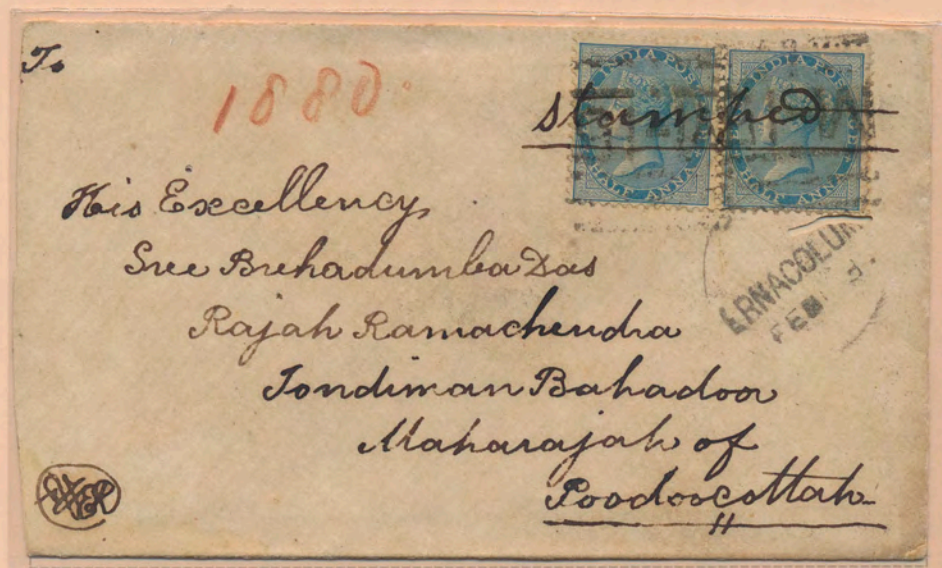 To
1880.
stamped
INDIA POSTAGE
HALF ANNA
INDIA POSTAGE
HALF ANNA
ERNACOLUM
FEB
His Excellency
Sree Brehadumba Das
Rajah Ramachendra
Tondiman Bahadoor
Maharajah of
Poodoocottah